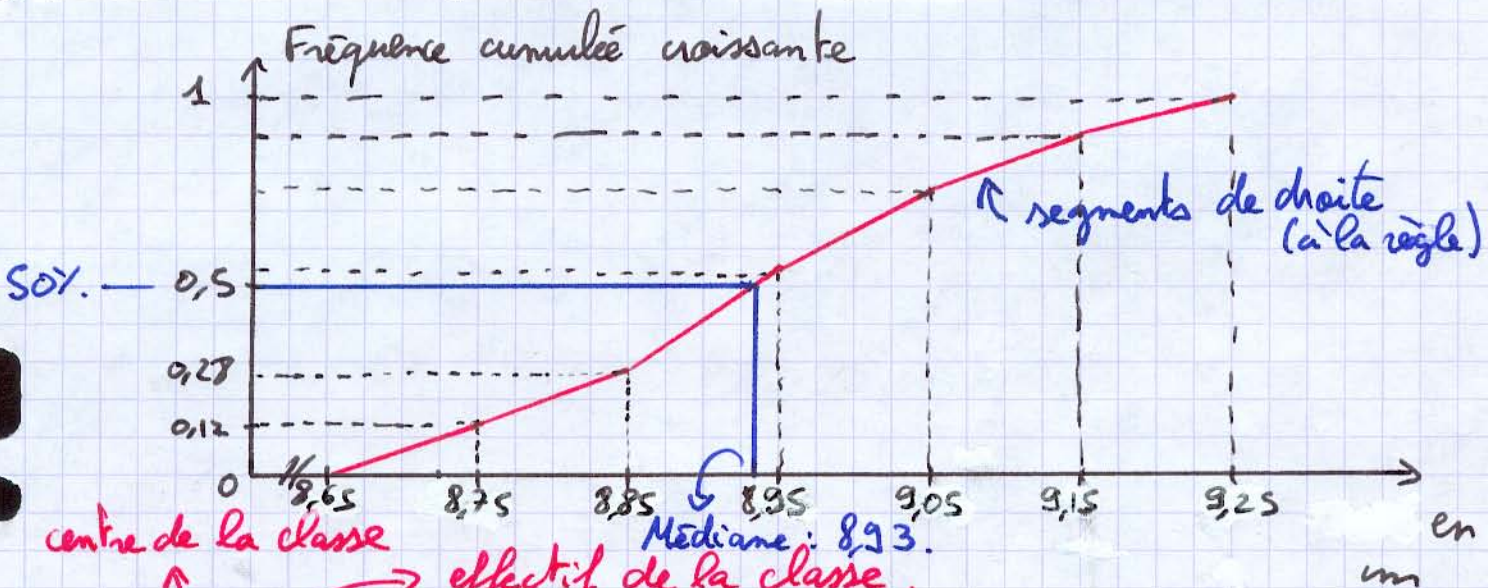 Fréquence cumulée croissante
1
segments de droite
(à la règle)
50%. — 0,5
0,28
0,12
0
8,65 8,75 8,85 8,95 9,05 9,15 9,25
en
centre de la classe
Médiane : 8,93.
effectif de la classe.